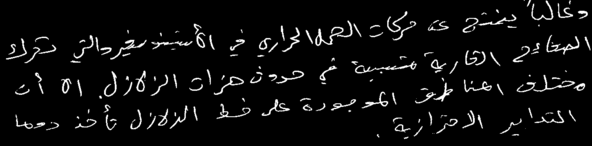 وغالباً ينتج عن حركات الحمل الحراري في الأستينوسفير والتي تحرك
الصفائح القارية متسببة في حدوث هزات الزلازل. الا أن
مختلف المناطق الموجودة على خط الزلازل تأخذ دوما
التدابير الاحترازية.